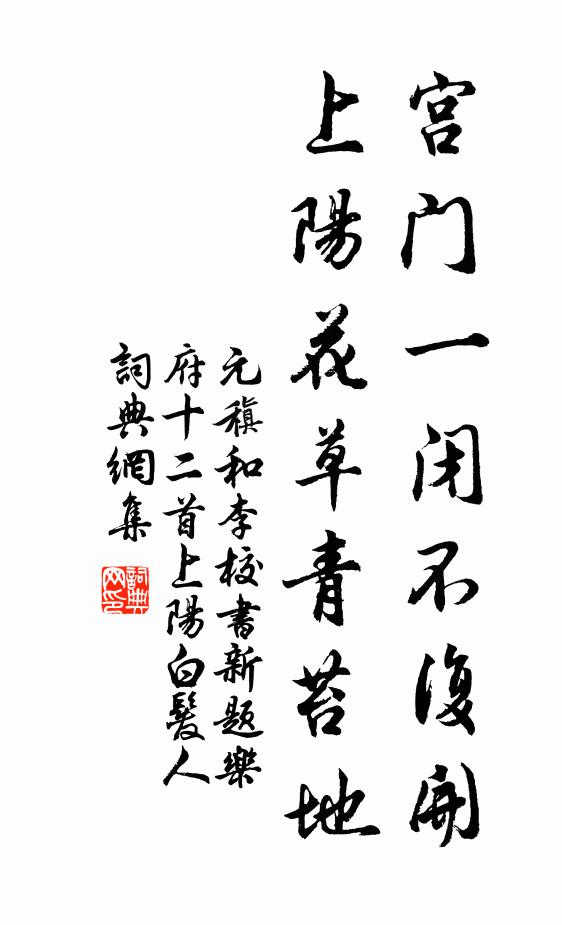 宮门一闭不復開
上陽花草青苔地
元稹和李校書新題樂
府十二首上陽白髮人
詞典網集
詞典
网印